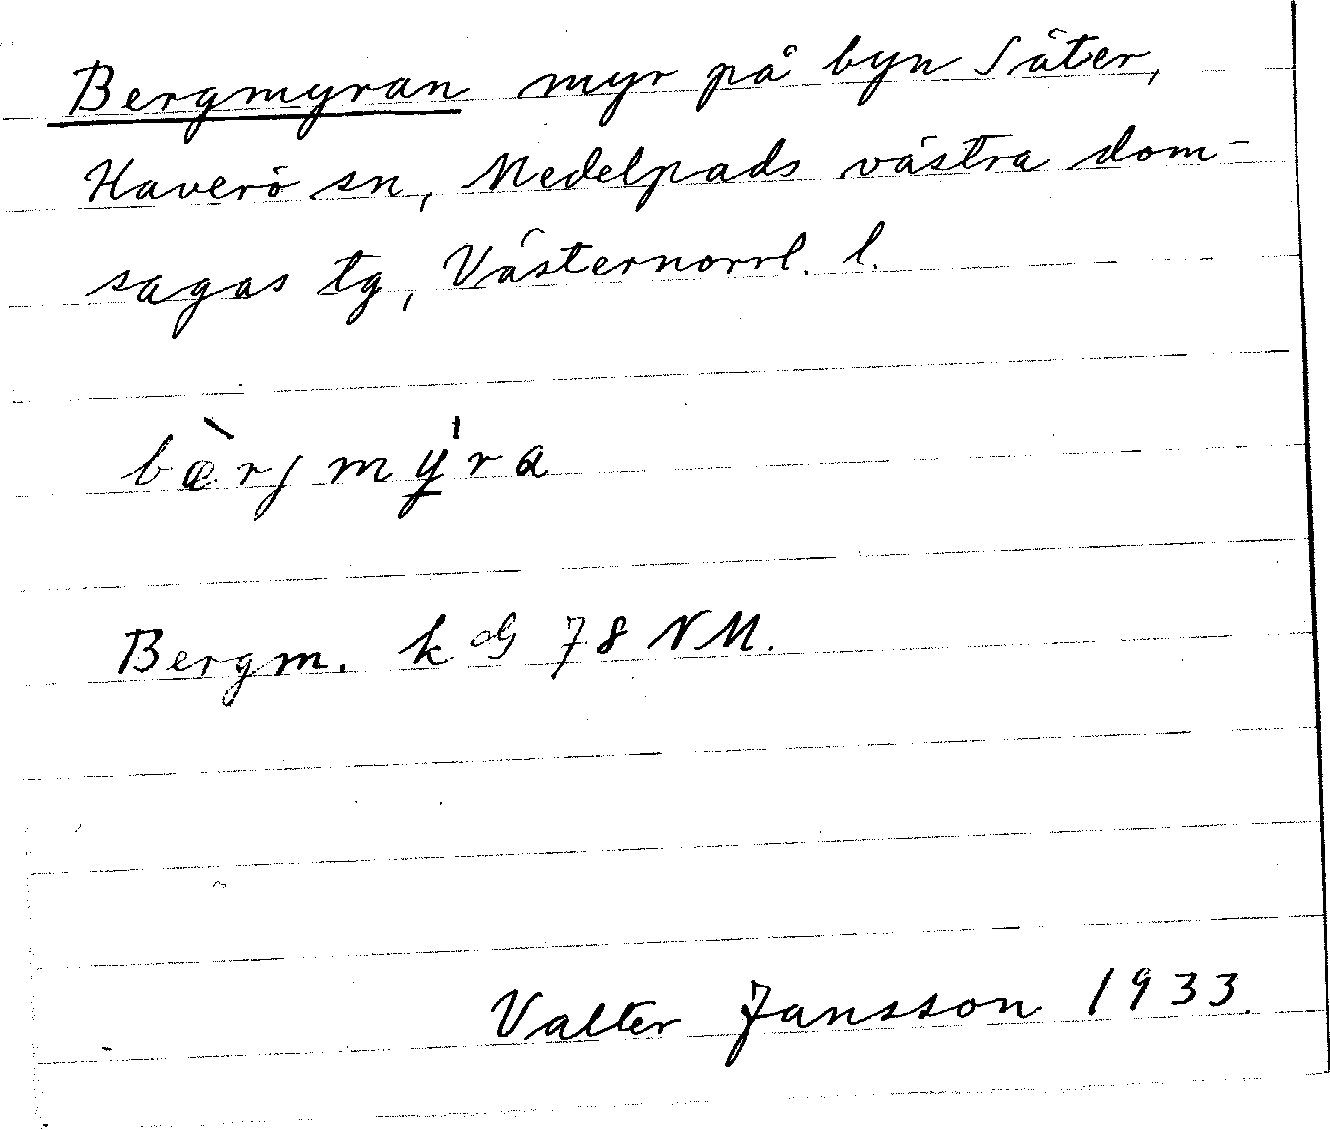 Bergmyran myr på byn Säter,
Haverö sn, Medelpads västra dom-
sagas tg, Västernorrl. l.
bæ̀rjmy̲̍ra
Bergm. k 78 NM.
Valter Jansson 1933.